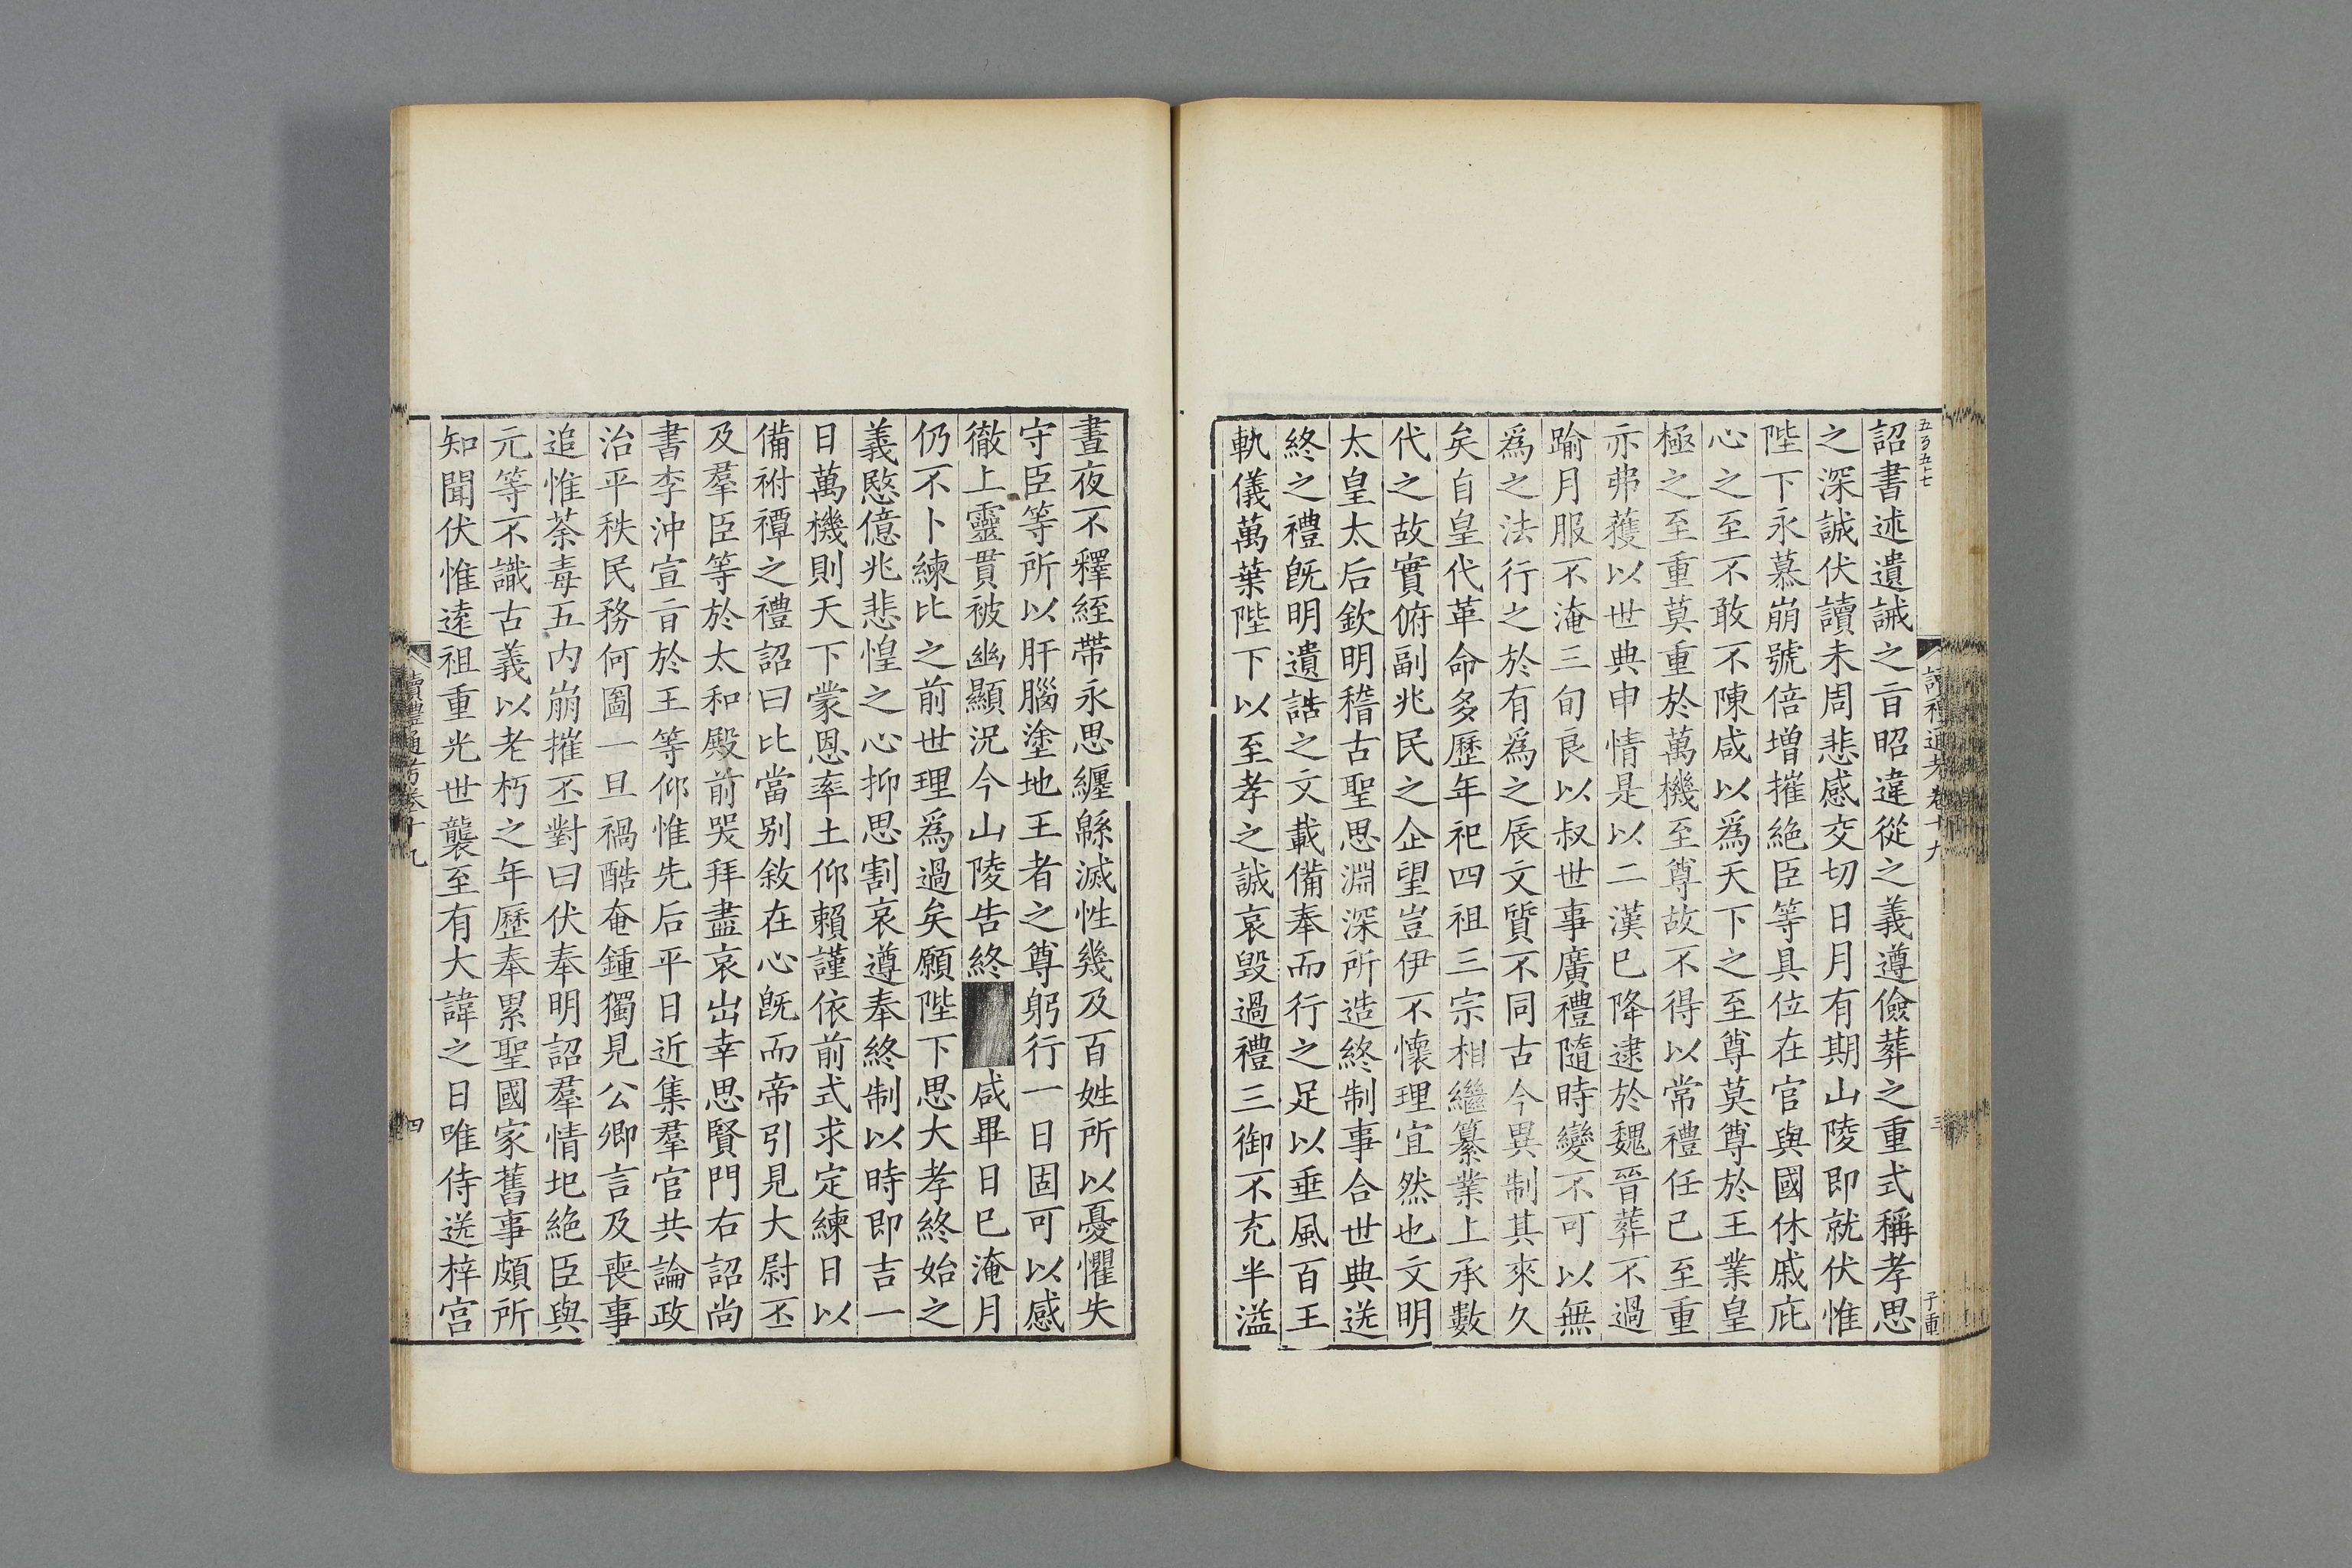 詔書述遺誡之㫖昭違從之義遵儉葬之重式稱孝思
之深誠伏讀未周悲感交切日月有期山陵即就伏惟
陛下永慕崩號倍增摧絶臣等具位在官與國休戚庇
心之至不敢不陳咸以爲天下之至尊莫尊於王業皇
極之至重莫重於萬機至尊故不得以常禮任己至重
亦弗獲以世典申情是以二漢已降逮於魏晉葬不過
踰月服不淹三旬良以叔世事廣禮隨時變不可以無
爲之法行之於有爲之辰文質不同古今異制其來久
矣自皇代革命多歷年祀四祖三宗相繼纂業上承數
代之故實俯副兆民之企望豈伊不懷理宜然也文明
太皇太后欽明稽古聖思淵深所造終制事合世典送
終之禮旣明遺誥之文載備奉而行之足以垂風百王
軌儀萬葉陛下以至孝之誠哀毀過禮三御不充半溢
晝夜不釋絰帶永思纏緜滅性幾及百姓所以憂懼失
守臣等所以肝腦塗地王者之尊躬行一日固可以感
徹上靈貫被幽顯況今山陵告終咸畢日已淹月
仍不卜練比之前世理爲過矣願陛下思大孝終始之
義愍億兆悲惶之心抑思割哀遵奉終制以時即吉一
日萬機則天下蒙恩率土仰賴謹依前式求定練日以
備祔禫之禮詔曰比當别敘在心旣而帝引見大尉丕
及羣臣等於太和殿前哭拜盡哀出幸思賢門右詔尚
書李沖宣㫖於王等仰惟先后平日近集羣官共論政
治平秩民務何圖一旦禍酷奄鍾獨見公卿言及喪事
追惟荼毒五内崩摧丕對曰伏奉明詔羣情圯絶臣與
元等不識古義以老朽之年歷奉累聖國家舊事頗所
知聞伏惟遠祖重光世襲至有大諱之日唯侍送梓宫
讀禮通考卷十九
四